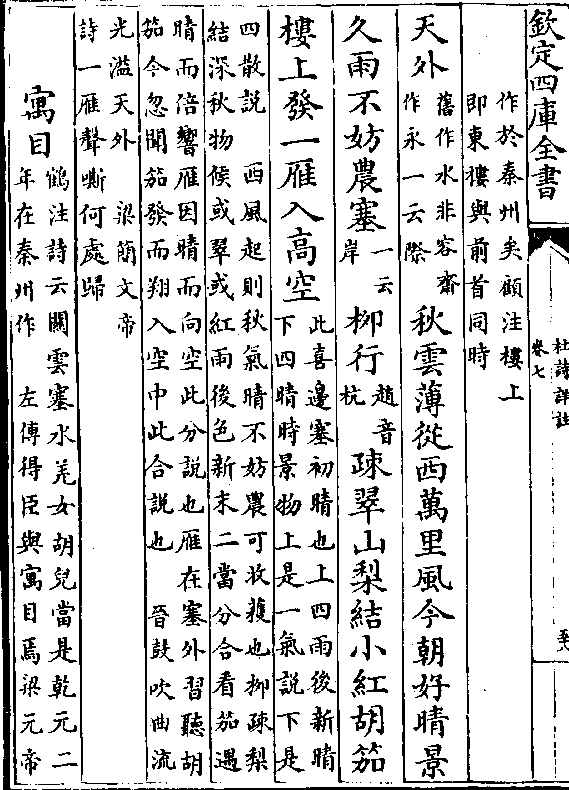 欽定四庫全書
杜詩詳註
卷七
至八
作於秦州矣顧注樓上
即東樓與前首同時
天外
舊作水非容齋
作永一云際
秋雲薄從西萬里風今朝好晴景
久雨不妨農塞
一云
岸
柳行
趙音
杭
疎翠山梨結小紅胡笳
樓上發一雁入高空
此喜邊塞初晴也上四雨後新晴
下四晴時景物上是一氣說下是
四散說 西風起則秋氣晴不妨農可收穫也柳疎梨
結深秋物候或翠或紅雨後色新末二當分合看笳遇
晴而倍響雁因晴而向空此分說也雁在塞外習聽胡
笳今忽聞笳發而翔入空中此合說也 晉鼓吹曲流
光溢天外 梁簡文帝
詩一雁聲嘶何處歸
寓目
鶴注詩云關雲塞水羌女胡兒當是乾元二
年在秦州作 左傳得臣與寓目焉梁元帝